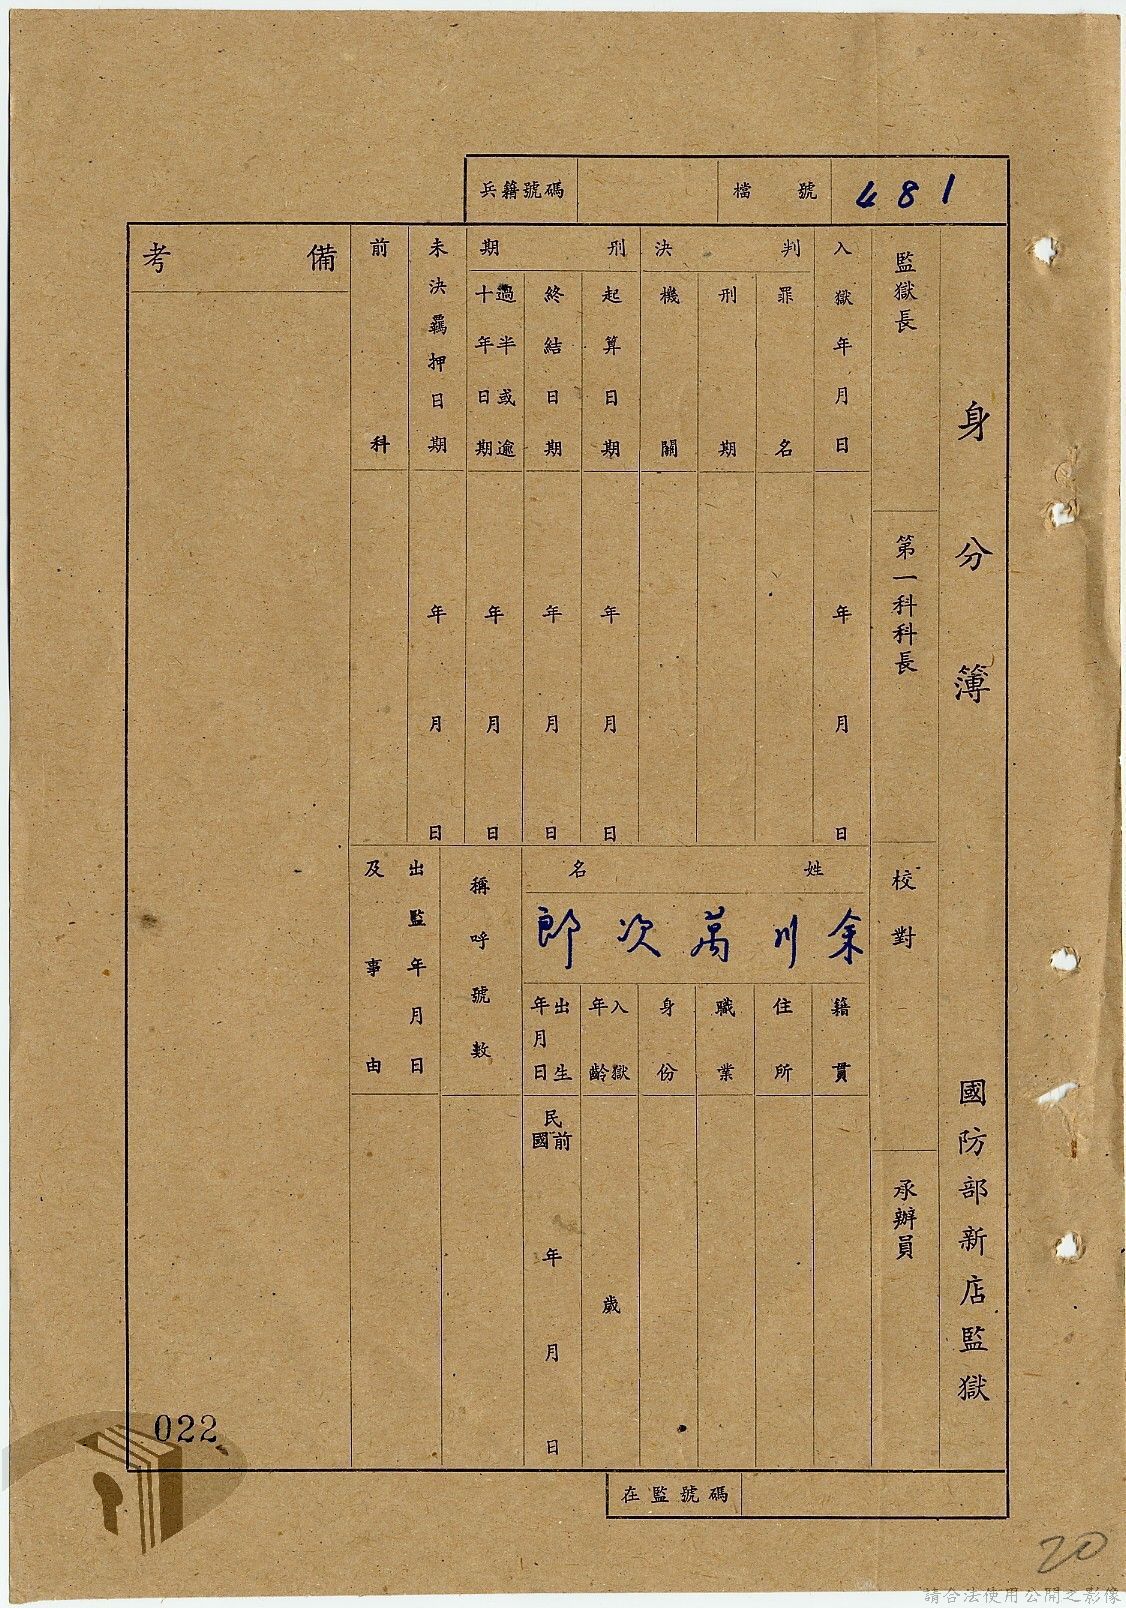 兵籍號碼
檔號
481
身分簿 國防部新店監獄
監獄長
第一科科長
校對
承辦員
入獄年月日
年月日
判決
罪名
刑期
機關
刑期
起算日期
年月日
終結日期
年月日
過半或逾
十年日期
年月日
未決羈押日期
年月日
前科
姓名
余川萬次郎
籍貫
住所
職業
身份
入獄
年齡
歲
出生
年月日
民
國前
年月日
稱呼號數
出監年月日
及事由
備考
022
在監號碼
20
請合法使用公開之影像